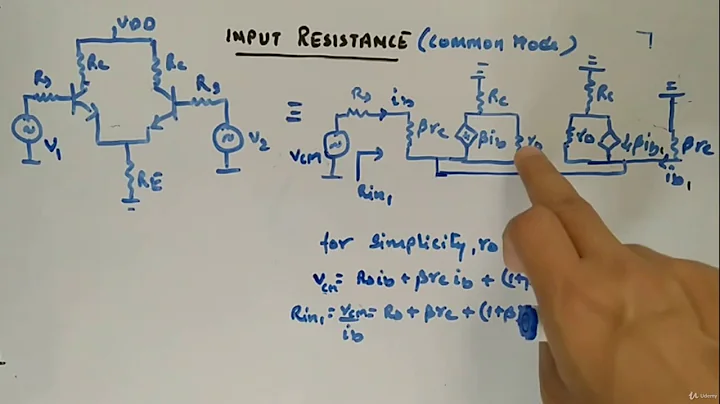 INPUT RESISTANCE (Common Mode)
VDD
Rc
Rc
Rs
Rs
V1
V2
RE
≡
Rs
ib
VCM
Rin1
βre
Rc
βib
ro
Rc
ro
βib1
βre
ib1
for simplicity, ro
vcm = Rsib + βre ib + (1+
Rin1 = vcm/ib = Rs + βre + (1+β)
Udemy